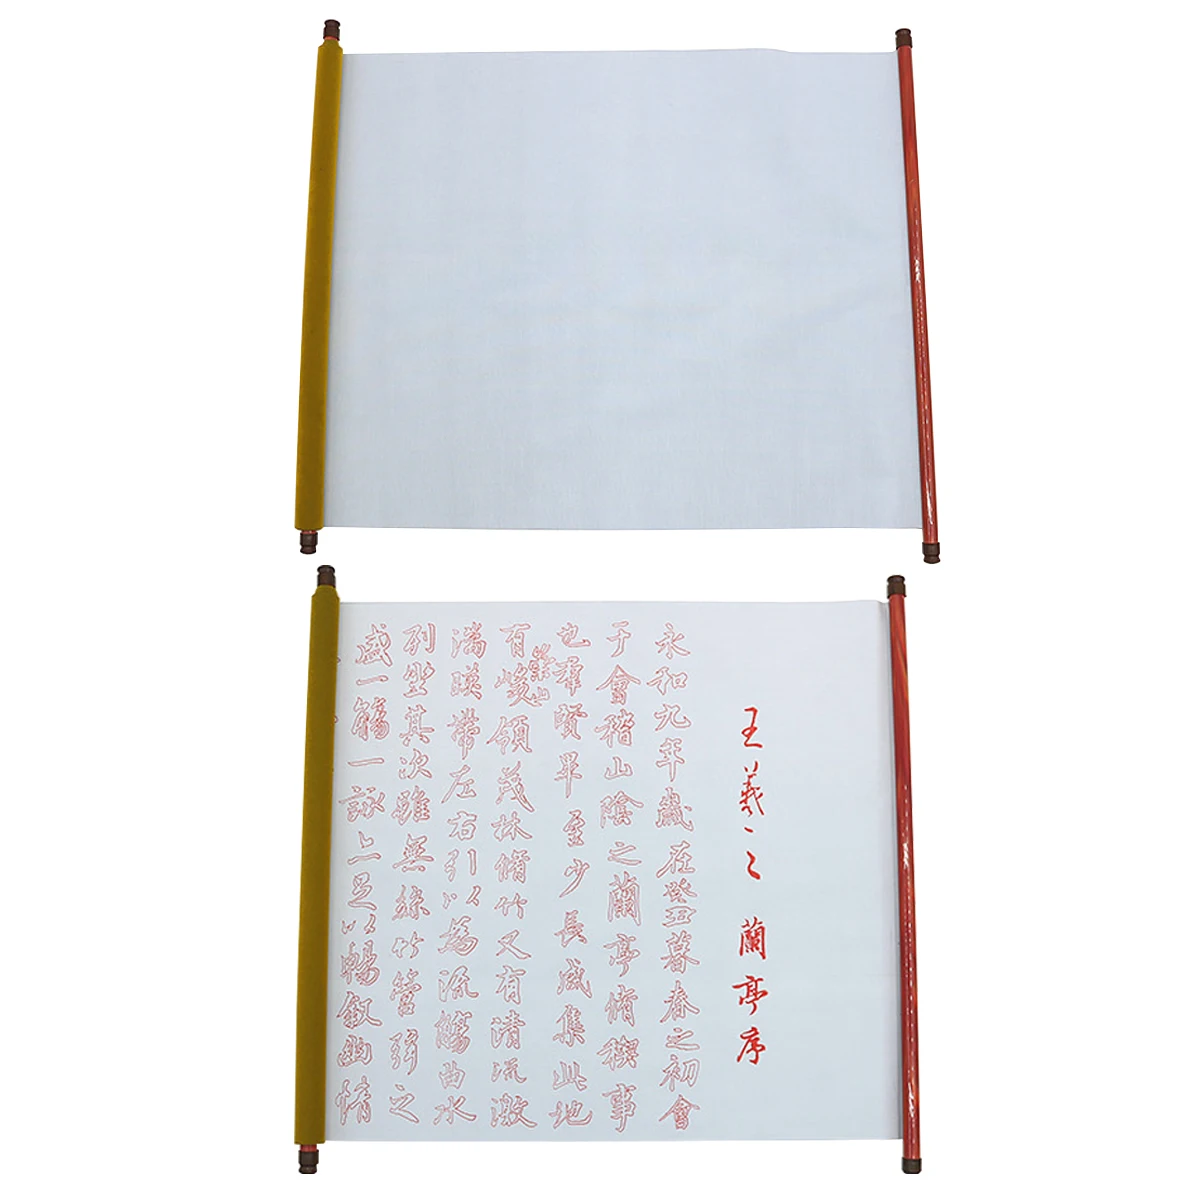 王羲之 蘭亭序
永和九年歲在癸丑暮春之初會
于會稽山陰之蘭亭脩禊事
也羣賢畢至少長咸集此地
有崇山峻領茂林脩竹又有清流激
湍暎帶左右引以為流觴曲水
列坐其次雖無絲竹管弦之
盛一觴一詠亦足以暢叙幽情